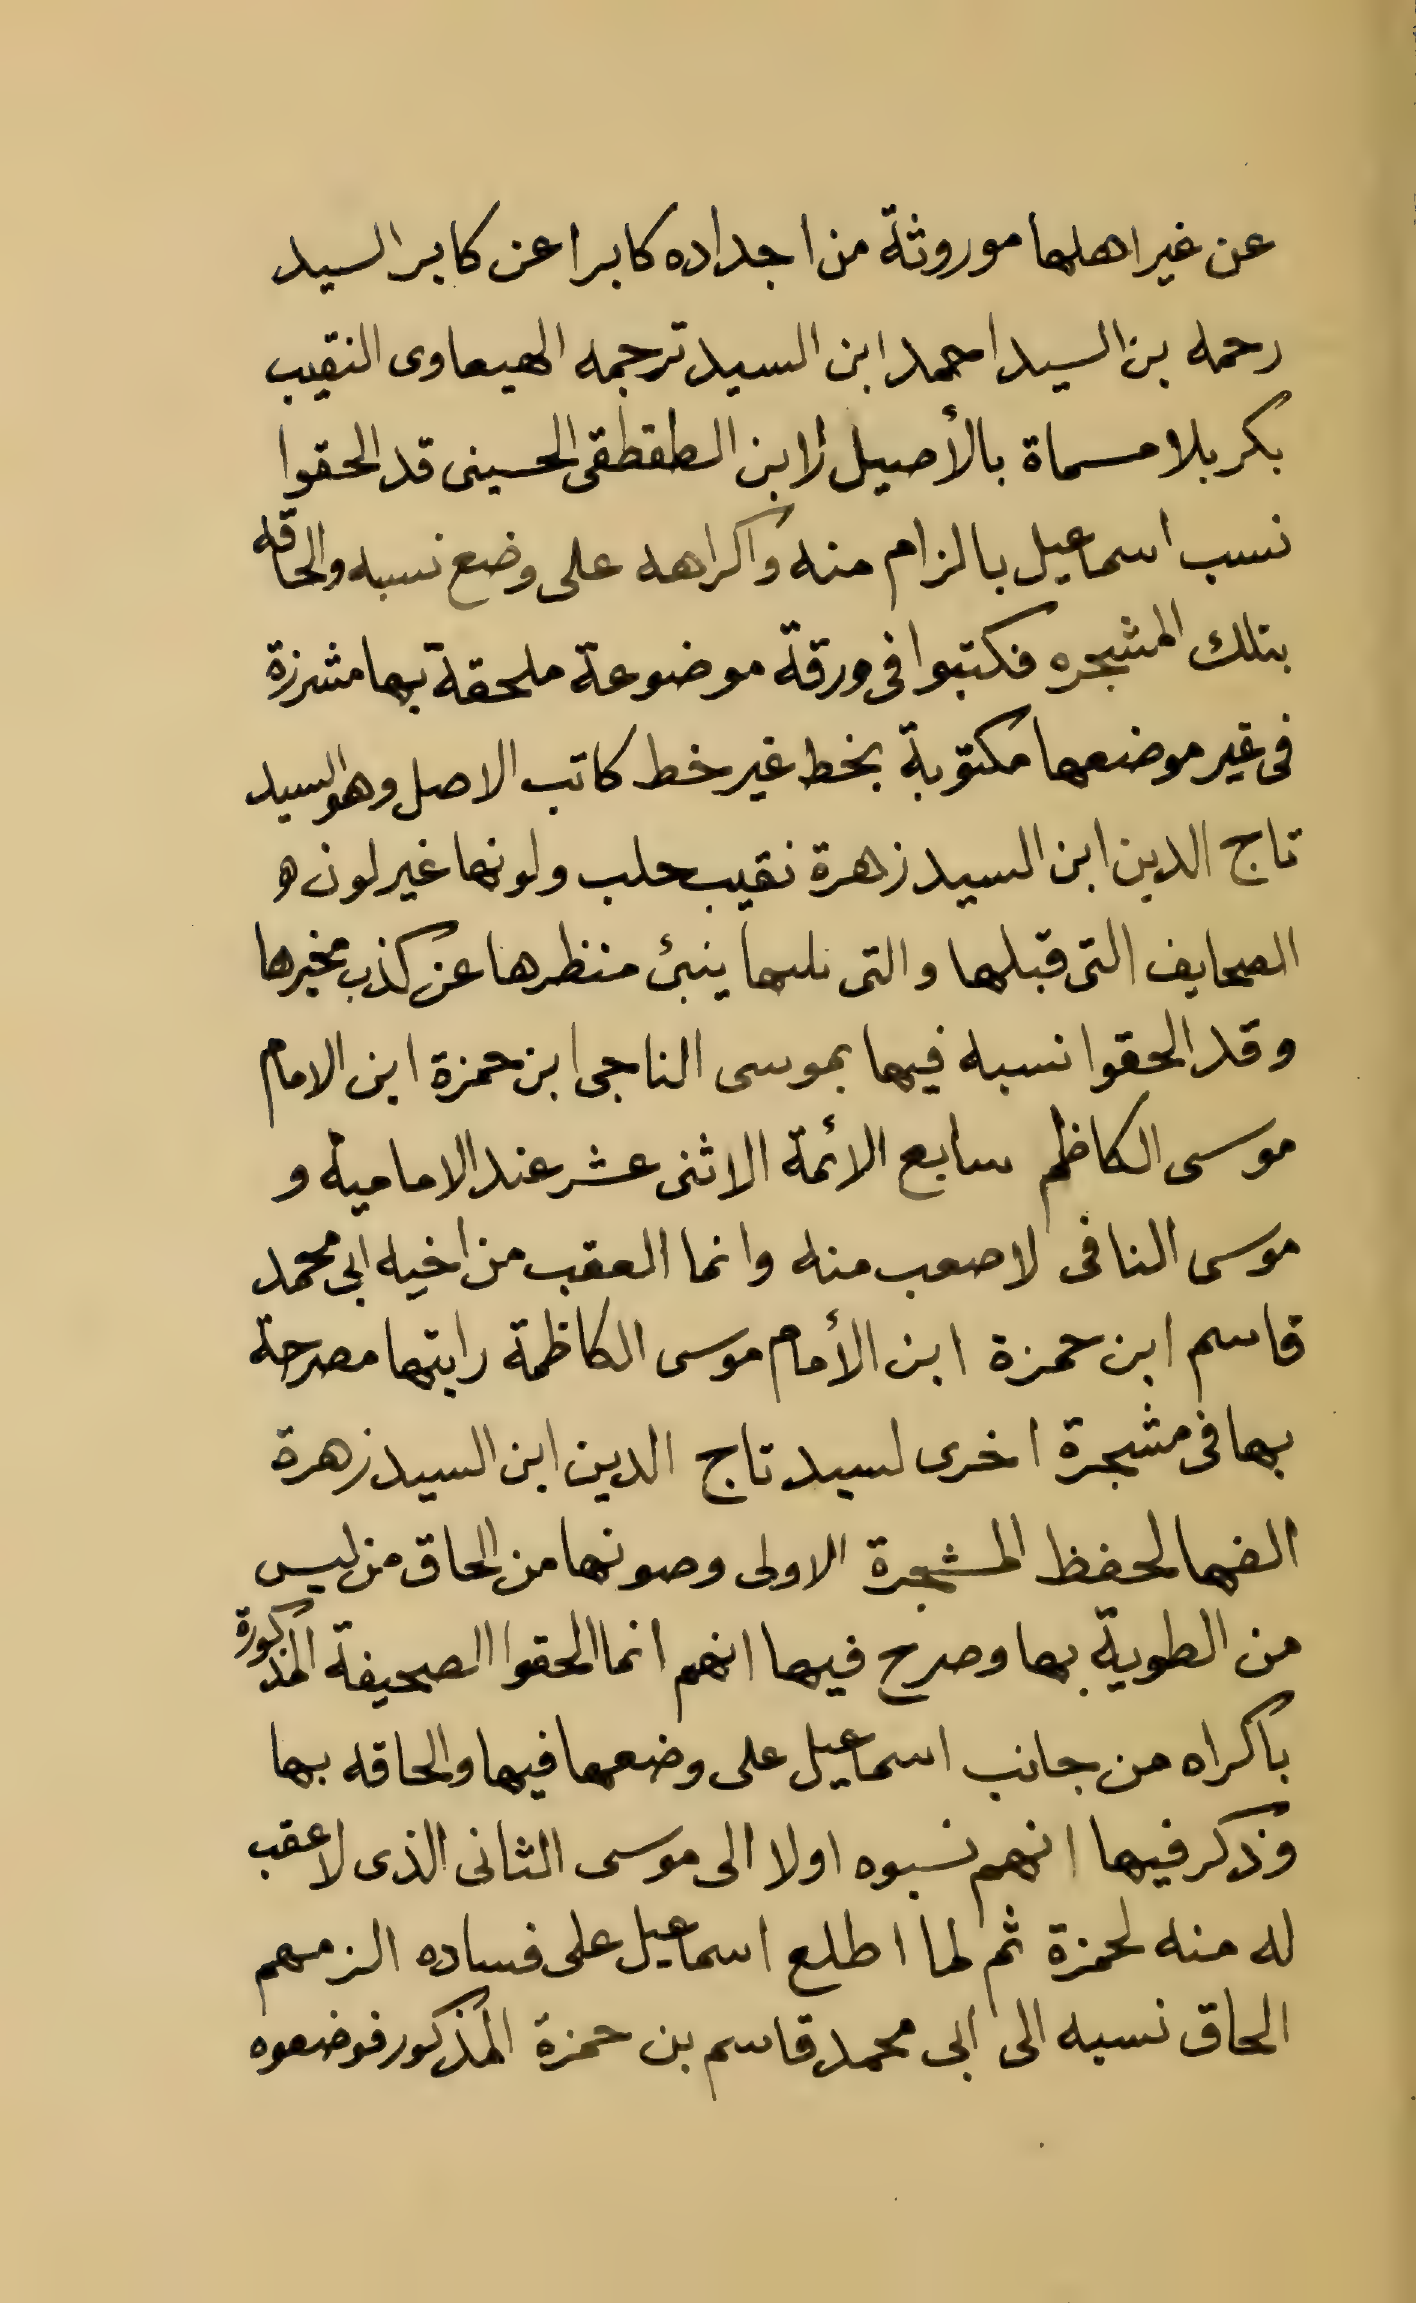 عن غير اهلها موروثة من اجداده كابرا عن كابر السيد
رحمه بن السيد احمد ابن السيد ترجمه الهيعاوى النقيب
بكربلا مسماة بالأصيل لابن الطقطقى الحسينى قد الحقوا
نسب اسماعيل بالزام منه واكراهه على وضع نسبه والحاقه
بتلك المشجره فكتبوا فى ورقة موضوعة ملحقة بها مشرزة
فى غير موضعها مكتوبة بخط غير خط كاتب الاصل وهو السيد
تاج الدين ابن السيد زهرة نقيب حلب ولونها غير لون ه
الصحايف التى قبلها والتى تليها ينبئ منظرها عن كذب مخبرها
وقد الحقوا نسبه فيها بموسى الناجى ابن حمزة ابن الامام
موسى الكاظم سابع الائمة الاثنى عشر عند الامامية و
موسى النافى لاصعب منه وانما العقب من اخيه ابى محمد
قاسم ابن حمزة ابن الأمام موسى الكاظمة رايتها مصرحة
بها فى مشجرة اخرى لسيد تاج الدين ابن السيد زهرة
الفها لحفظ المشجرة الاولى وصونها من الحاق من ليس
من الطوية بها وصرح فيها انهم انما الحقوا الصحيفة المذكورة
باكراه من جانب اسماعيل على وضعها فيها والحاقه بها
وذكر فيها انهم نسبوه اولا الى موسى الثانى الذى لا عقب
له منه لحمزة ثم لما اطلع اسماعيل على فساده الزمهم
الحاق نسبه الى ابى محمد قاسم بن حمزة المذكور فوضعوه